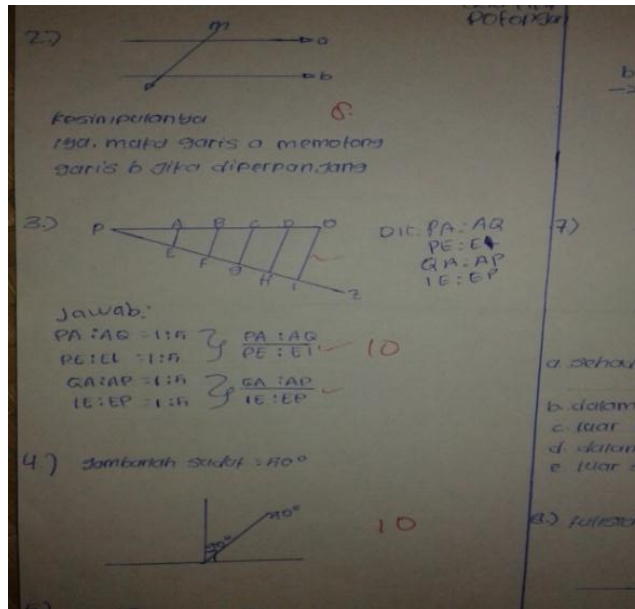 potongan
2.)
m
a
b
8
Kesimpulannya
iya. maka garis a memotong
garis b jika diperpanjang
3.)
P A B C D Q
E F G H I
Z
Dit: PA : AQ
PE : EI
QA : AP
IE : EP
Jawab:
PA : AQ = 1:5
PE : EI = 1:5
PA : AQ
PE : EI
10
QA : AP = 1:5
IE : EP = 1:5
QA : AP
IE : EP
4.) Gambarlah sudut = 50°
50°
50°
10
b
7)
b. dalam
c. luar
d. dalam
e luar
8.)
5)